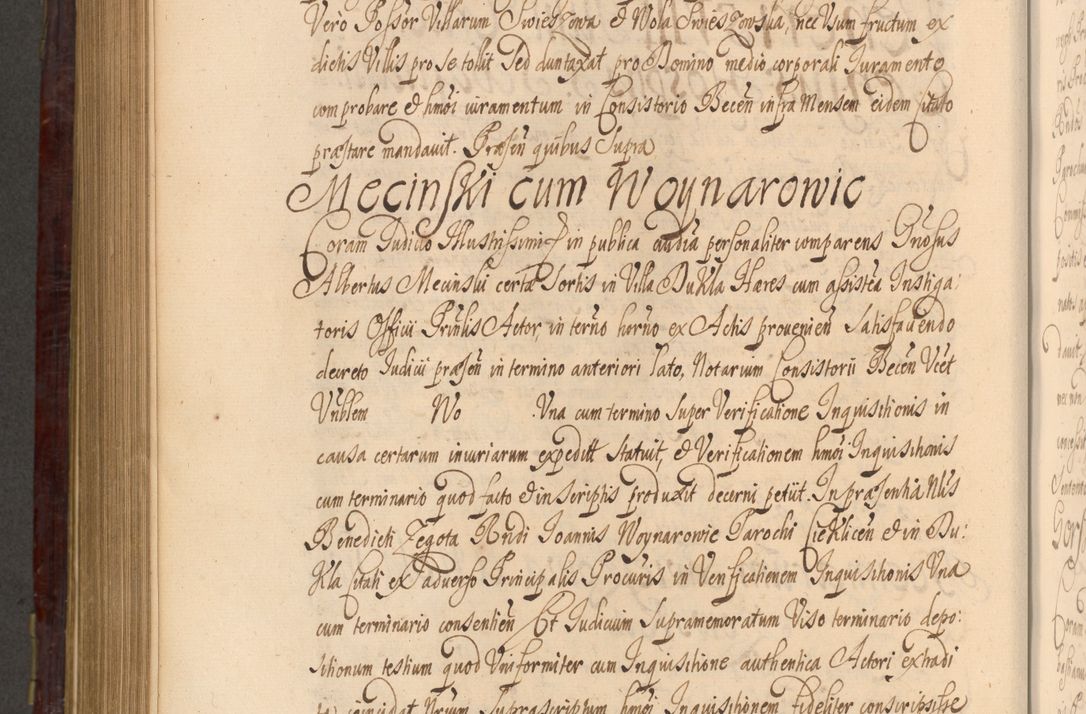 Vero Possor Villarum Swieszowa et Wola Swieszowska, nec Usum fructum ex
dictis Villis pro se tollit sed duntaxat pro Domino medio corporali Juramento
comprobare et hmoi iuramentum in Consistorio Becen infra Mensem eidem Citato
præstare mandavit. Præsen quibus Supra
Mecinski cum Woynarowic
Coram Judicio Illustrissimi in publica audia personaliter comparens Gnosus
Albertus Mecinski certæ Sortis in Villa Dukla Hæres cum assistea Instiga:
toris Officii Prinlis Actor, in terno herno ex Actis provenien Satisfaciendo
decreto Judicii præsen in termino anteriori lato, Notarium Consistorii Becen Vcet
Vnblem No . Una cum termino super Verificatione Inquisitionis in
causa certarum iniuriarum expeditt statuit, et Verificationem hmoi Inquisitionis
cum terminario quod facto et in scriptis produxit decerni petiit. In præsentia Nlis
Benedicti Zegota Rndi Joannis Woynarowic Parochi Cieklicen et in Du:
kla Citati ex adverso Principalis Procuris in Verificationem Inquisitionis Una
cum terminario consentien Et Judicium Supramemoratum Viso terminario depo:
sitionum testium quod Uniformiter cum Inquisitione authentica Actori extradi
Suprascriptum hmoi Inquisitionem fideliter conscripsisse